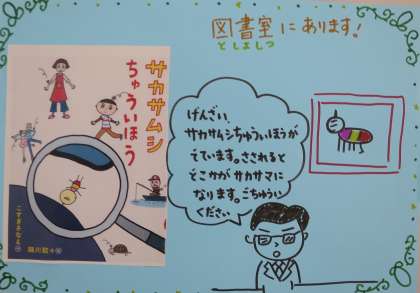 図書室にあります!
としょしつ
サカサムシ
ちゅういほう
こすぎさなえ 作
げんざい、
サカサムシちゅういほうが
でています。さされると
どこかがサカサマに
なります。ごちゅうい
ください